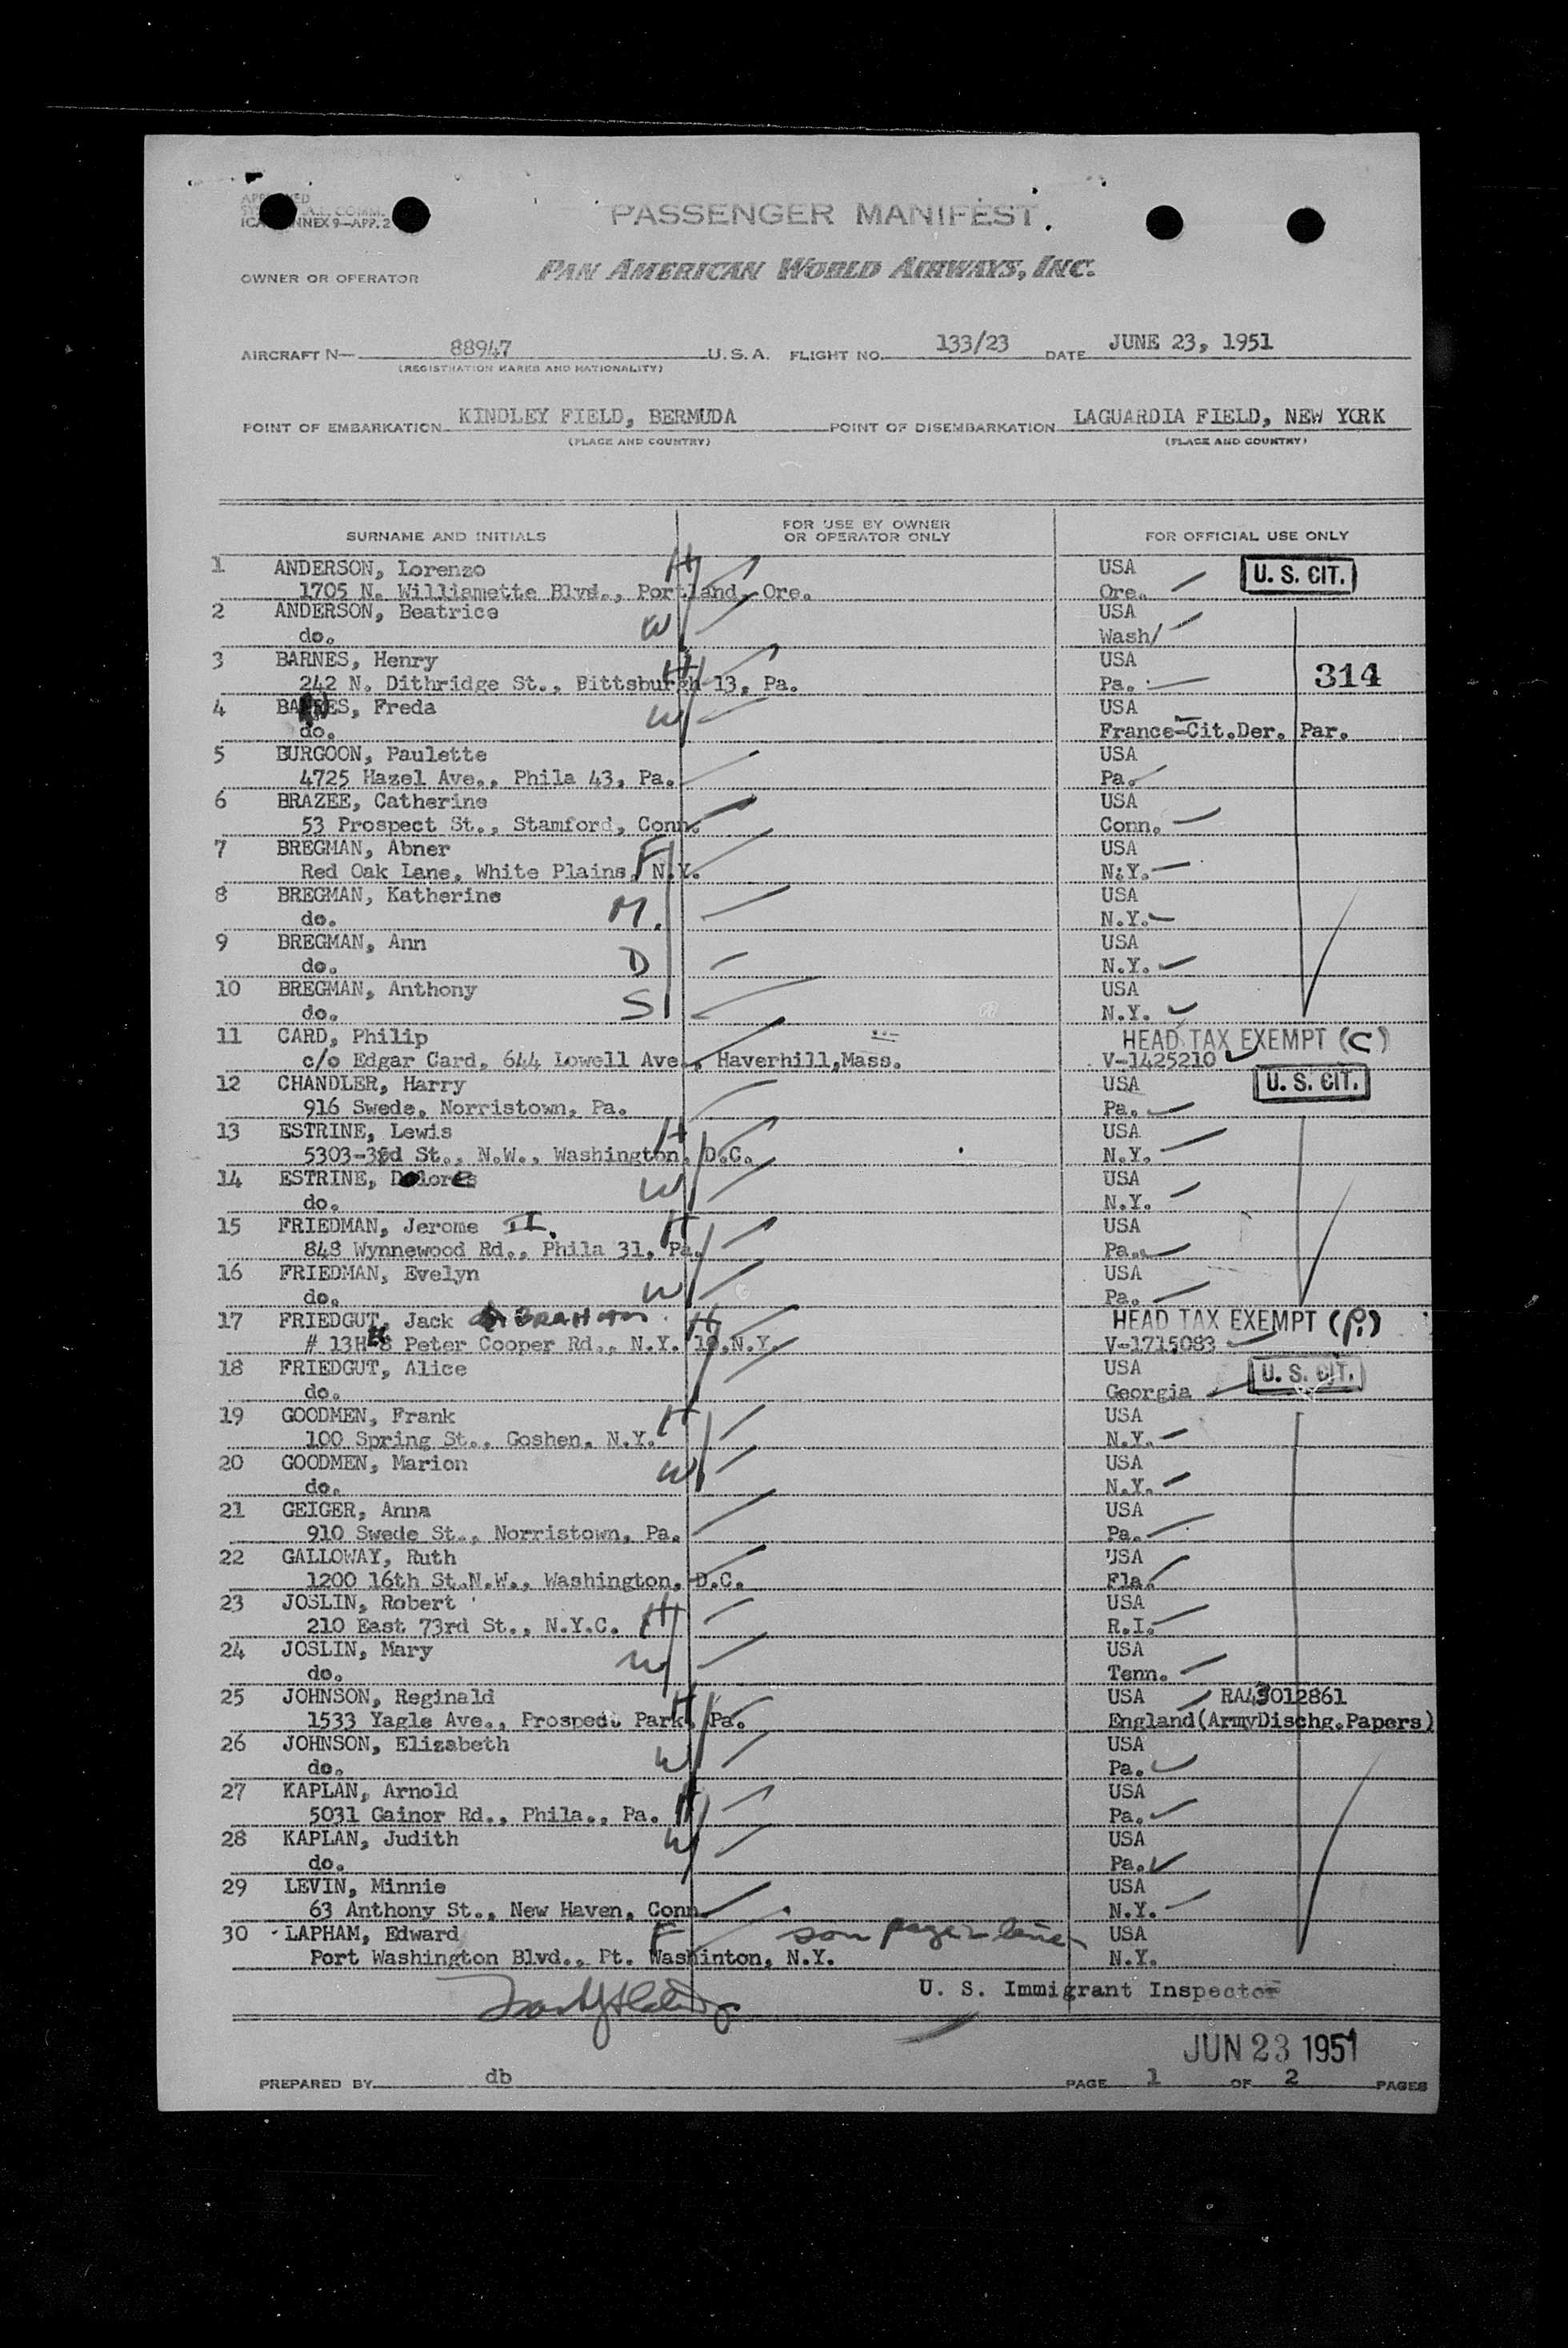 ICAO ANNEX 9—APP. 2
PASSENGER MANIFEST
OWNER OR OPERATOR
PAN AMERICAN WORLD AIRWAYS, INC.
AIRCRAFT N— 88947 U.S.A. FLIGHT NO. 133/23 DATE JUNE 23, 1951
(REGISTRATION MARKS AND NATIONALITY)
POINT OF EMBARKATION KINDLEY FIELD, BERMUDA POINT OF DISEMBARKATION LAGUARDIA FIELD, NEW YORK
(PLACE AND COUNTRY) (PLACE AND COUNTRY)
SURNAME AND INITIALS FOR USE BY OWNER OR OPERATOR ONLY FOR OFFICIAL USE ONLY
1 ANDERSON, Lorenzo H USA U. S. CIT.
1705 N. Williamette Blvd., Portland, Ore. Ore.
2 ANDERSON, Beatrice USA
do. W Wash/
3 BARNES, Henry H USA 314
242 N. Dithridge St., Pittsburgh 13, Pa. Pa.
4 BARNES, Freda W USA
do. France-Cit.Der. Par.
5 BURGOON, Paulette USA
4725 Hazel Ave., Phila 43, Pa. Pa.
6 BRAZEE, Catherine USA
53 Prospect St., Stamford, Conn. Conn.
7 BREGMAN, Abner F USA
Red Oak Lane, White Plains, N.Y. N.Y.
8 BREGMAN, Katherine M. USA
do. N.Y.
9 BREGMAN, Ann D USA
do. N.Y.
10 BREGMAN, Anthony S USA
do. N.Y.
11 CARD, Philip HEAD TAX EXEMPT (C)
c/o Edgar Card, 644 Lowell Ave., Haverhill,Mass. V-1425210
12 CHANDLER, Harry USA U. S. CIT.
916 Swede, Norristown, Pa. Pa.
13 ESTRINE, Lewis H USA
St., N.W., Washington, D.C. N.Y.
14 ESTRINE, W USA
do. N.Y.
15 FRIEDMAN, Jerome II. H USA
848 Wynnewood Rd., Phila 31, Pa. Pa.
16 FRIEDMAN, Evelyn W USA
do. Pa.
17 FRIEDGUT, Jack ABRAHAM. H HEAD TAX EXEMPT (P.)
Peter Cooper Rd., N.Y. 10,N.Y. V-1715083
18 FRIEDGUT, Alice USA U. S. CIT.
do. Georgia
19 GOODMEN, Frank H USA
100 Spring St., Goshen, N.Y. N.Y.
20 GOODMEN, Marion W USA
do. N.Y.
21 GEIGER, Anna USA
910 Swede St., Norristown, Pa. Pa.
22 GALLOWAY, Ruth USA
1200 16th St.N.W., Washington, D.C. Fla.
23 JOSLIN, Robert USA
210 East 73rd St., N.Y.C. H R.I.
24 JOSLIN, Mary W USA
do. Tenn.
25 JOHNSON, Reginald H USA RA43012861
1533 Yagle Ave., Prospect Park, Pa. England(ArmyDischg.Papers)
26 JOHNSON, Elizabeth W USA
do. Pa.
27 KAPLAN, Arnold USA
5031 Gainor Rd., Phila., Pa. H Pa.
28 KAPLAN, Judith W USA
do. Pa.
29 LEVIN, Minnie USA
63 Anthony St., New Haven, Conn. N.Y.
30 LAPHAM, Edward F son page 2 line USA
Port Washington Blvd., Pt. Washinton, N.Y. N.Y.
U. S. Immigrant Inspector
JUN 23 1951
PREPARED BY db PAGE 1 OF 2 PAGES